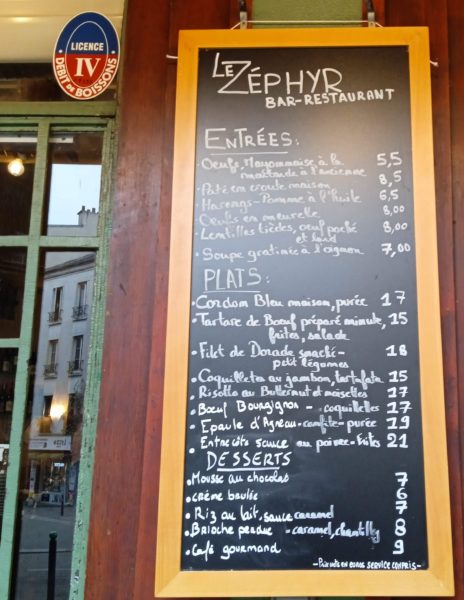 LICENCE
IV
DEBIT DE BOISSONS
LE ZÉPHYR
BAR-RESTAURANT
ENTRÉES:
Oeufs, Mayonnaise à la
moutarde à l'ancienne 5,5
Pâté en croute maison 8,5
Harengs-Pomme à l'huile 6,5
Oeufs en meurette 8,00
Lentilles tièdes, oeuf poché
et lard 8,00
• Soupe gratinée à l'oignon 7,00
PLATS:
• Cordon Bleu maison, purée 17
• Tartare de Bœuf préparé minute, 15
frites, salade
• Filet de Dorade snacké- 18
petit légumes
• Coquillettes au jambon, tartufata 15
• Risotto au Butternut et noisettes 17
• Bœuf Bourgignon - coquillettes 17
• Epaule d'Agneau-confite-purée 19
• Entrecôte sauce au poivre-frites 21
DESSERTS
• Mousse au chocolat 7
• Crème brulée 6
• Riz au lait, sauce caramel 7
• Brioche perdue - caramel, chantilly 8
• Café gourmand 9
-Prix nets en euros SERVICE COMPRIS-